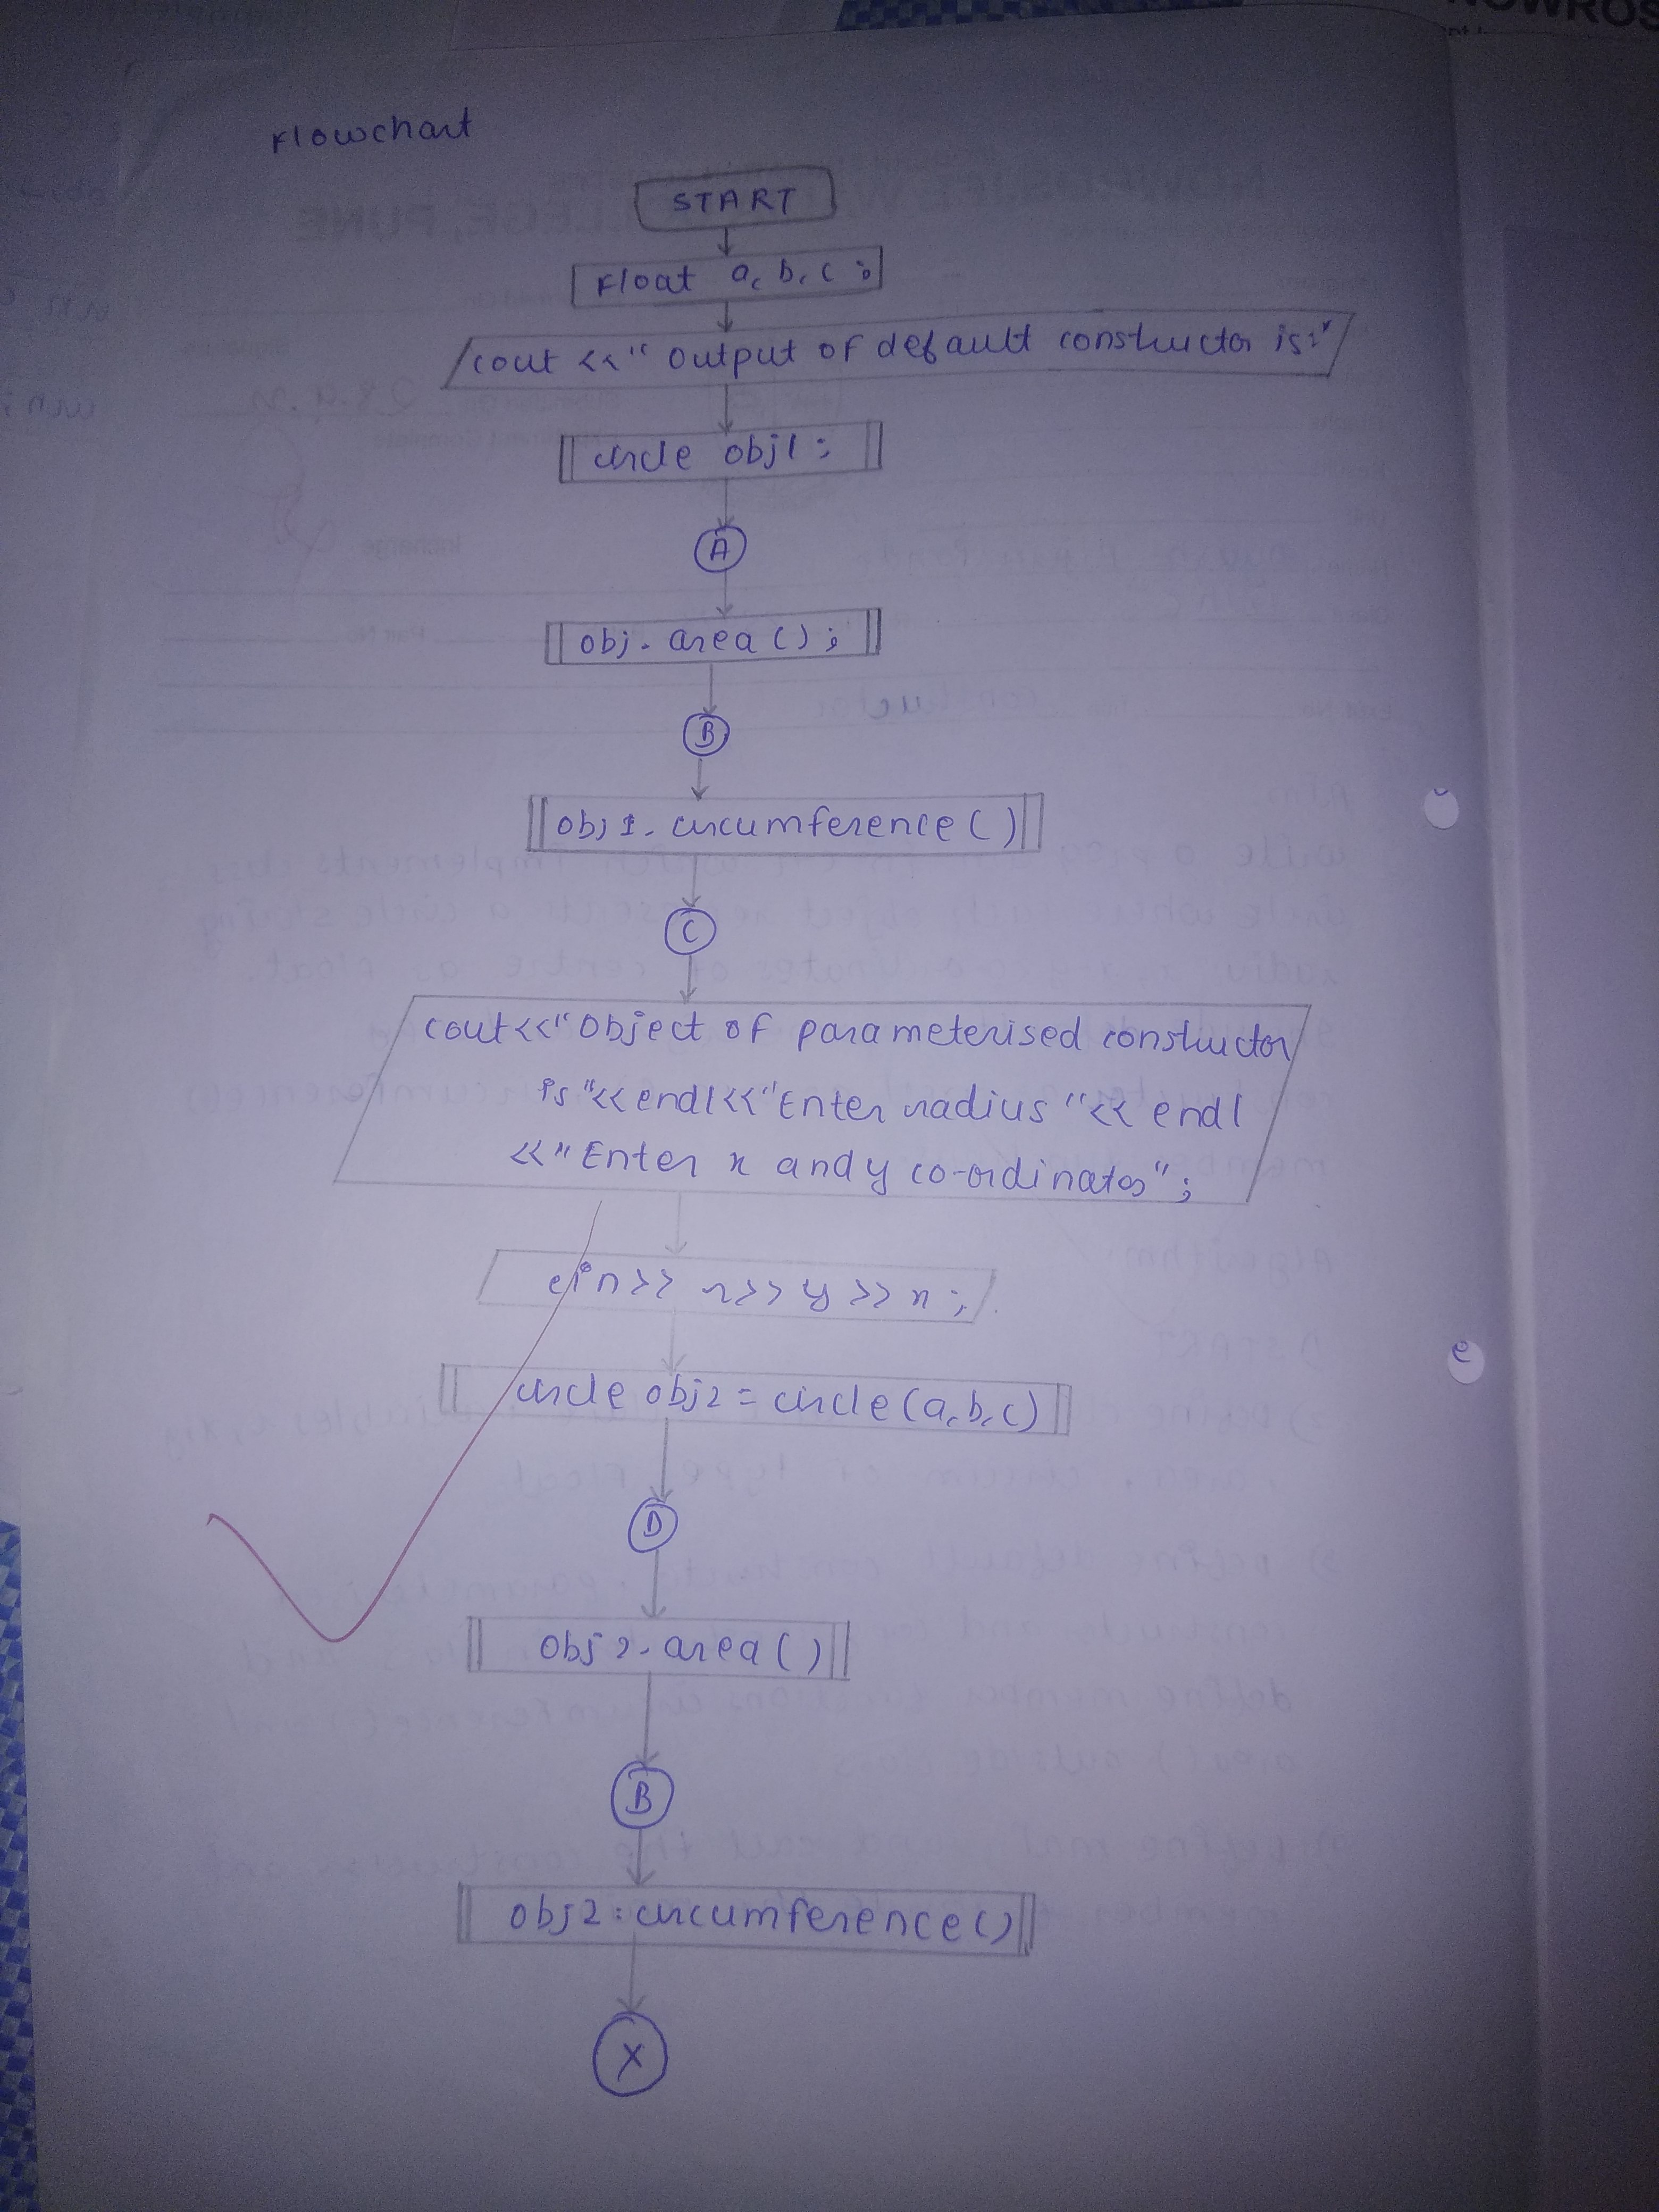 Flowchart
START
Float a, b, c ;
cout << " output of default constructor is:"
circle obj1 ;
A
obj. area ( ) ;
B
obj 1. circumference ( )
C
cout<<"Object of parameterised constructor
is"<< endl<<"Enter radius "<< endl
<<" Enter x and y co-ordinates" ;
cin>> r>> y >> x ;
circle obj2 = circle (a, b, c)
D
Obj 2. area ( )
B
obj2 : circumference ( )
X